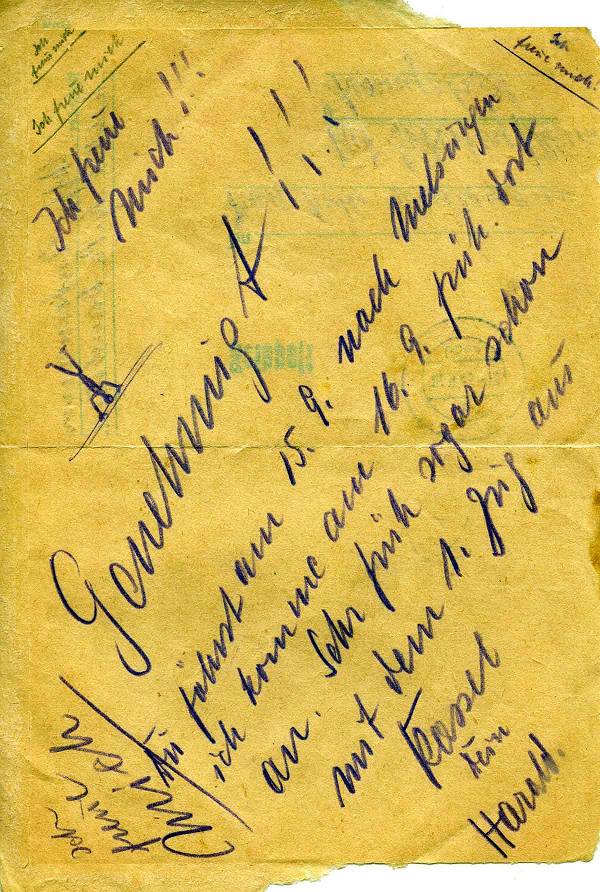 Ich
freue mich
Ich freue mich
Ich
freue mich!
Ich freue
mich!!!
Genehmigt!!!
Du fährst am 15. 9. nach Melsungen
ich komme am 16. 9. früh dort
an. Sehr früh sogar schon
mit dem 1. Zug aus
Kassel
Dein
Harald.
Ich
freue
mich